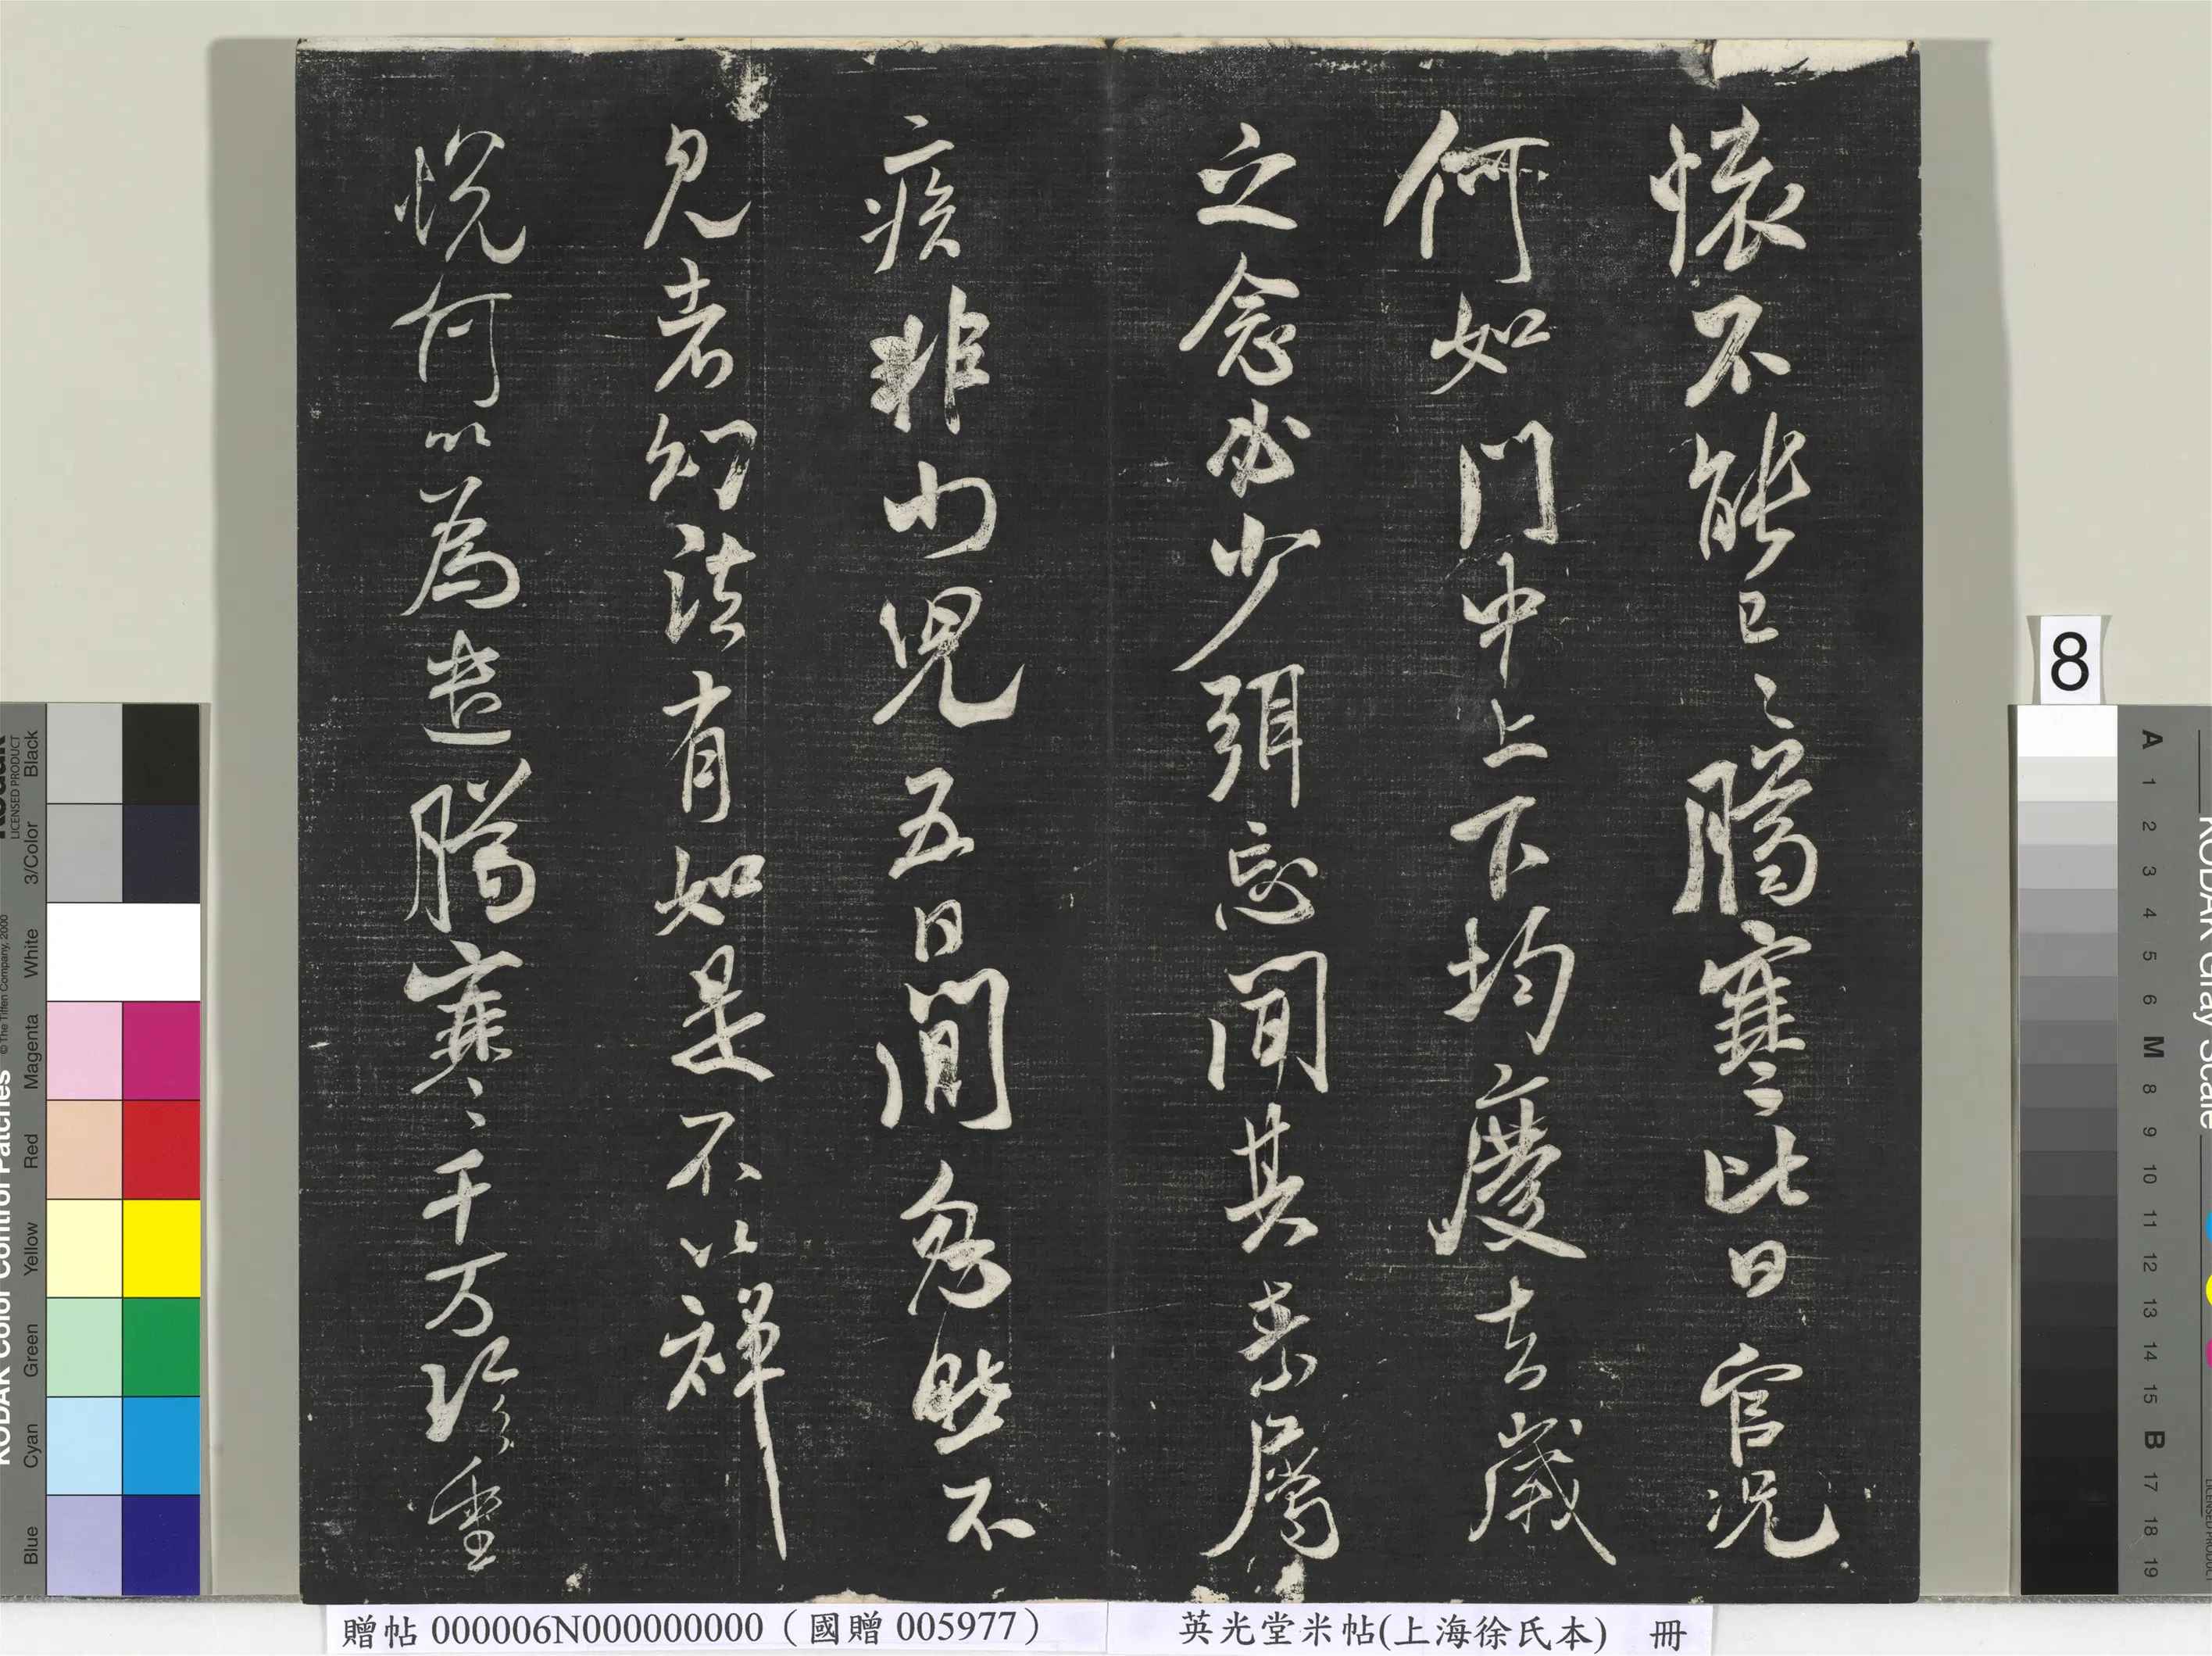 懷不能已〻臈寒〻此日官况
何如門中上下均慶去歲
之念必少弭忘聞其素
疾非小児五日間然不
見若幻法有如是不以禪
悅何以為遣臈寒〻千万珎重
8
贈帖 000006N000000000（國贈 005977）
英光堂米帖(上海徐氏本) 冊
KODAK Color Control Patches
© The Tiffen Company, 2000
LICENSED PRODUCT
Blue Cyan Green Yellow Red Magenta White 3/Color Black
KODAK Gray Scale
A 1 2 3 4 5 6 M 8 9 10 11 12 13 14 15 B 17 18 19